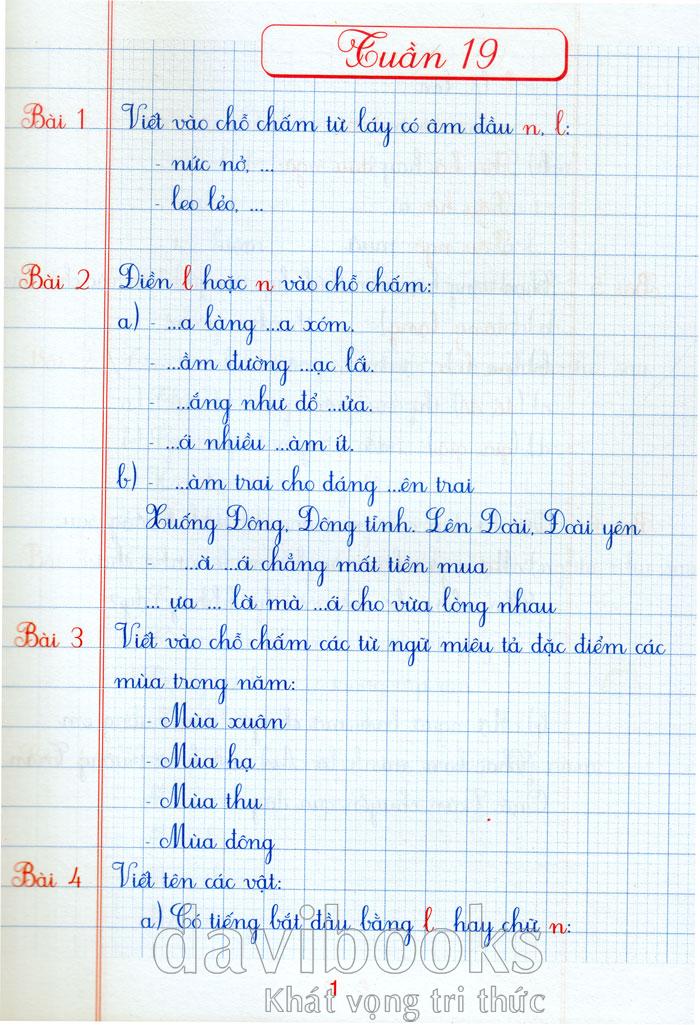 Tuần 19
Bài 1 Viết vào chỗ chấm từ láy có âm đầu n, l:
- nức nở, ...
- leo lẻo, ...
Bài 2 Điền l hoặc n vào chỗ chấm:
a) - ...a làng ...a xóm.
- ...ầm đường ...ạc lối.
- ...ắng như đổ ...ửa.
- ...ói nhiều ...àm ít.
b) - ...àm trai cho đáng ...ên trai
Xuống Đông, Đông tĩnh. Lên Đoài, Đoài yên
- ...ời ...ói chẳng mất tiền mua
... ựa ... lời mà ...ói cho vừa lòng nhau
Bài 3 Viết vào chỗ chấm các từ ngữ miêu tả đặc điểm các
mùa trong năm:
- Mùa xuân
- Mùa hạ
- Mùa thu
- Mùa đông
Bài 4 Viết tên các vật:
a) Có tiếng bắt đầu bằng l hay chữ n:
davibooks
1
Khát vọng tri thức